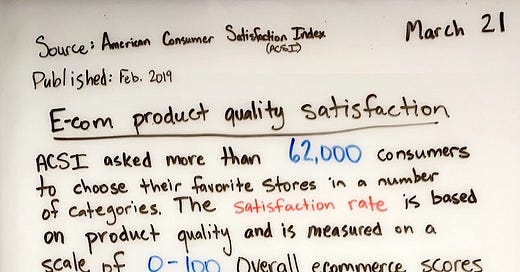 March 21
Source: American Consumer Satisfaction Index
(ACSI)
Published: Feb. 2019
E-com product quality satisfaction
ACSI asked more than 62,000 consumers
to choose their favorite stores in a number
of categories. The satisfaction rate is based
on product quality and is measured on a
scale of 0-100 Overall ecommerce scores